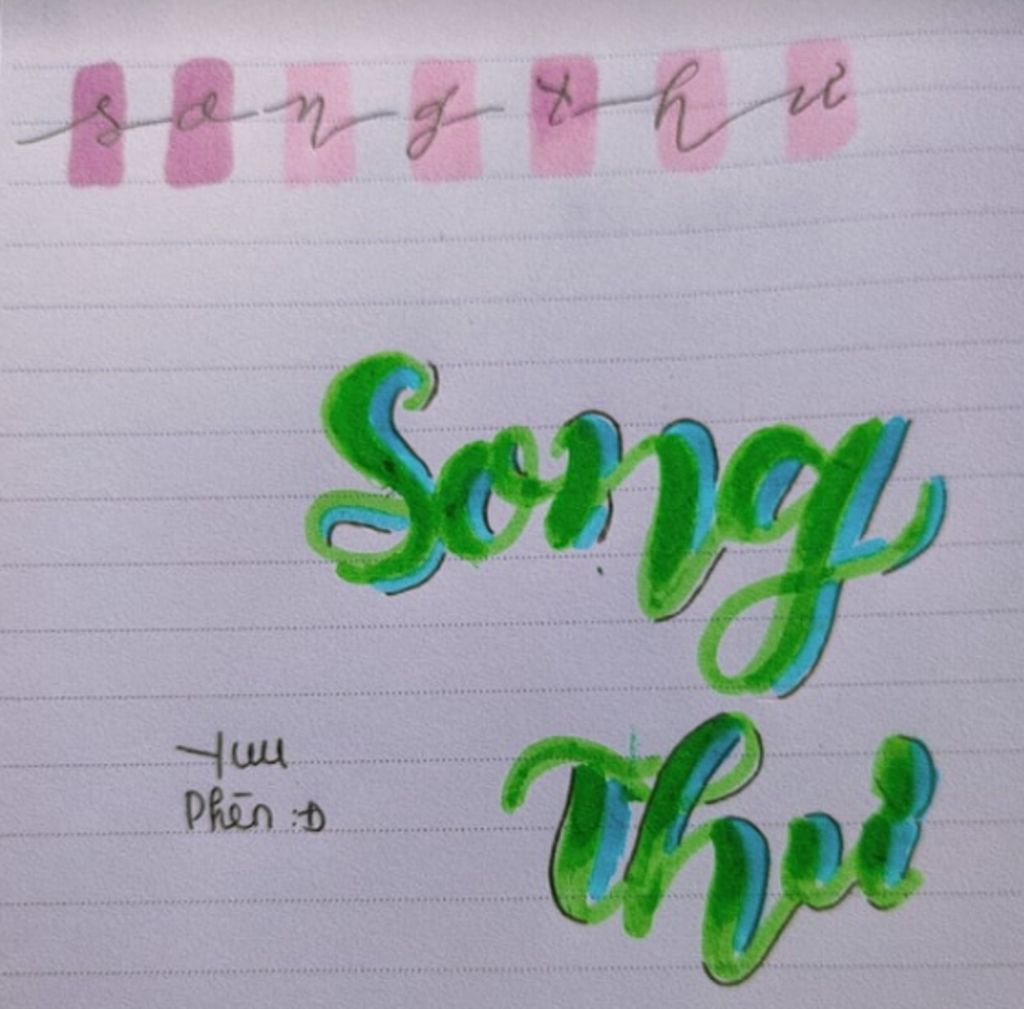 song thư
Song
Thư
Yuu
Phēn :D